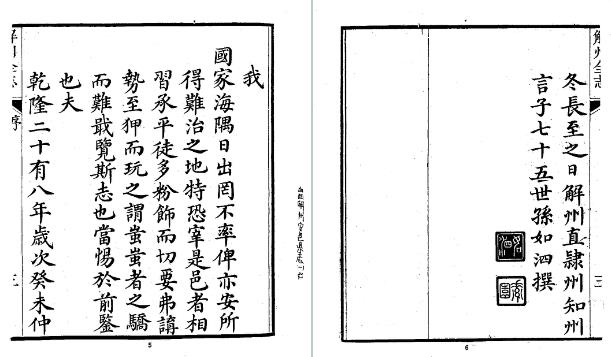 我
國家海隅日出罔不率俾亦安所
得難治之地特恐宰是邑者相
習承平徒多粉飾而切要弗講
勢至狎而玩之謂蚩蚩者之驕
而難戢覽斯志也當惕於前鑒
也夫
乾隆二十有八年歲次癸未仲
解州全志
序
三
5
解州全志
三
冬長至之日解州直隸州知州
言子七十五世孫如泗撰
6